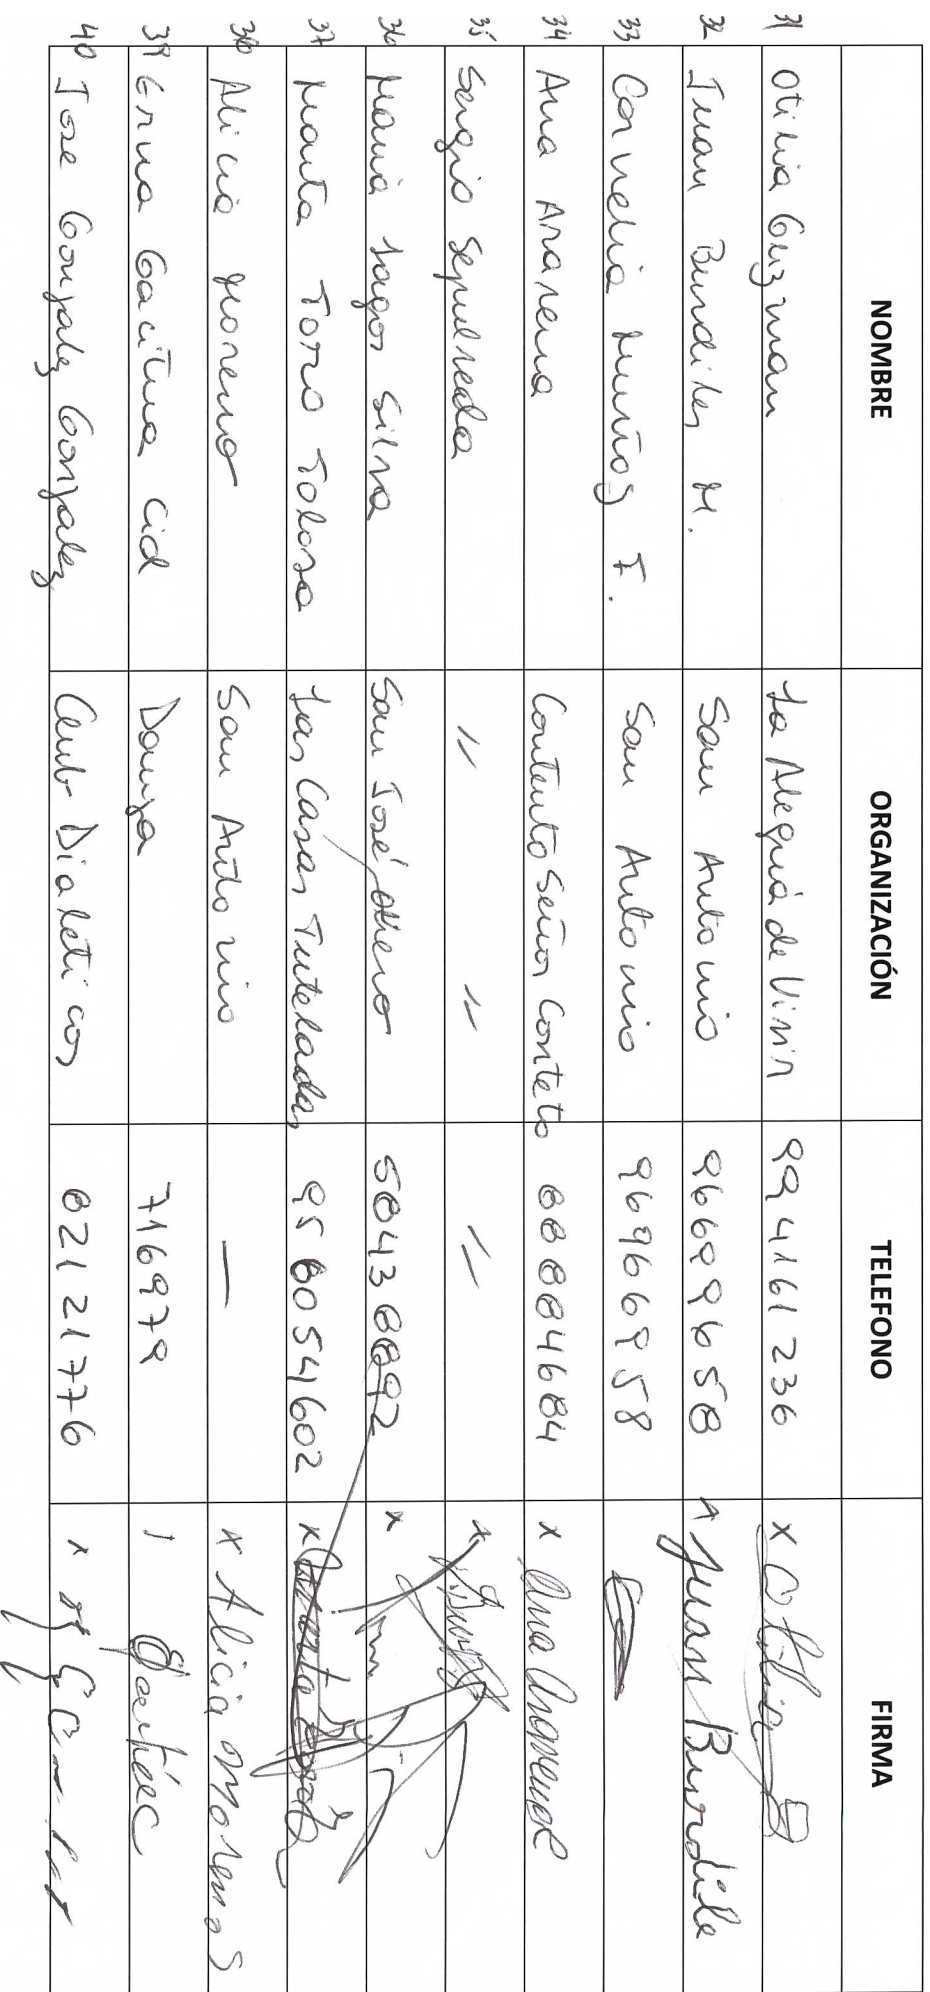 NOMBRE ORGANIZACIÓN TELEFONO FIRMA
31 Otilia Guzman La Alegria de Vivir 994161236 x Otilia
32 Juan Burdiles M. San Antonio 96699658 Juan Burdile
33 Cornelia Muñoz F. San Antonio 96966958
34 Ana Aranena Contento Señor Conteto 88884684 x Ana Aranena
35 Sergio Sepulveda " " " x
36 Maria Lagos Silva San José Obrero 58438892 x
37 Marta Toro Tolosa Las Casas Tuteladas 958054602 x Marta
38 Alicia Moreno San Antonio — x Alicia Moreno S
39 Erna Gacitua Cid Danza 716979
40 Jose Gonzalez Gonzalez Club Diabeticos 82121776 x